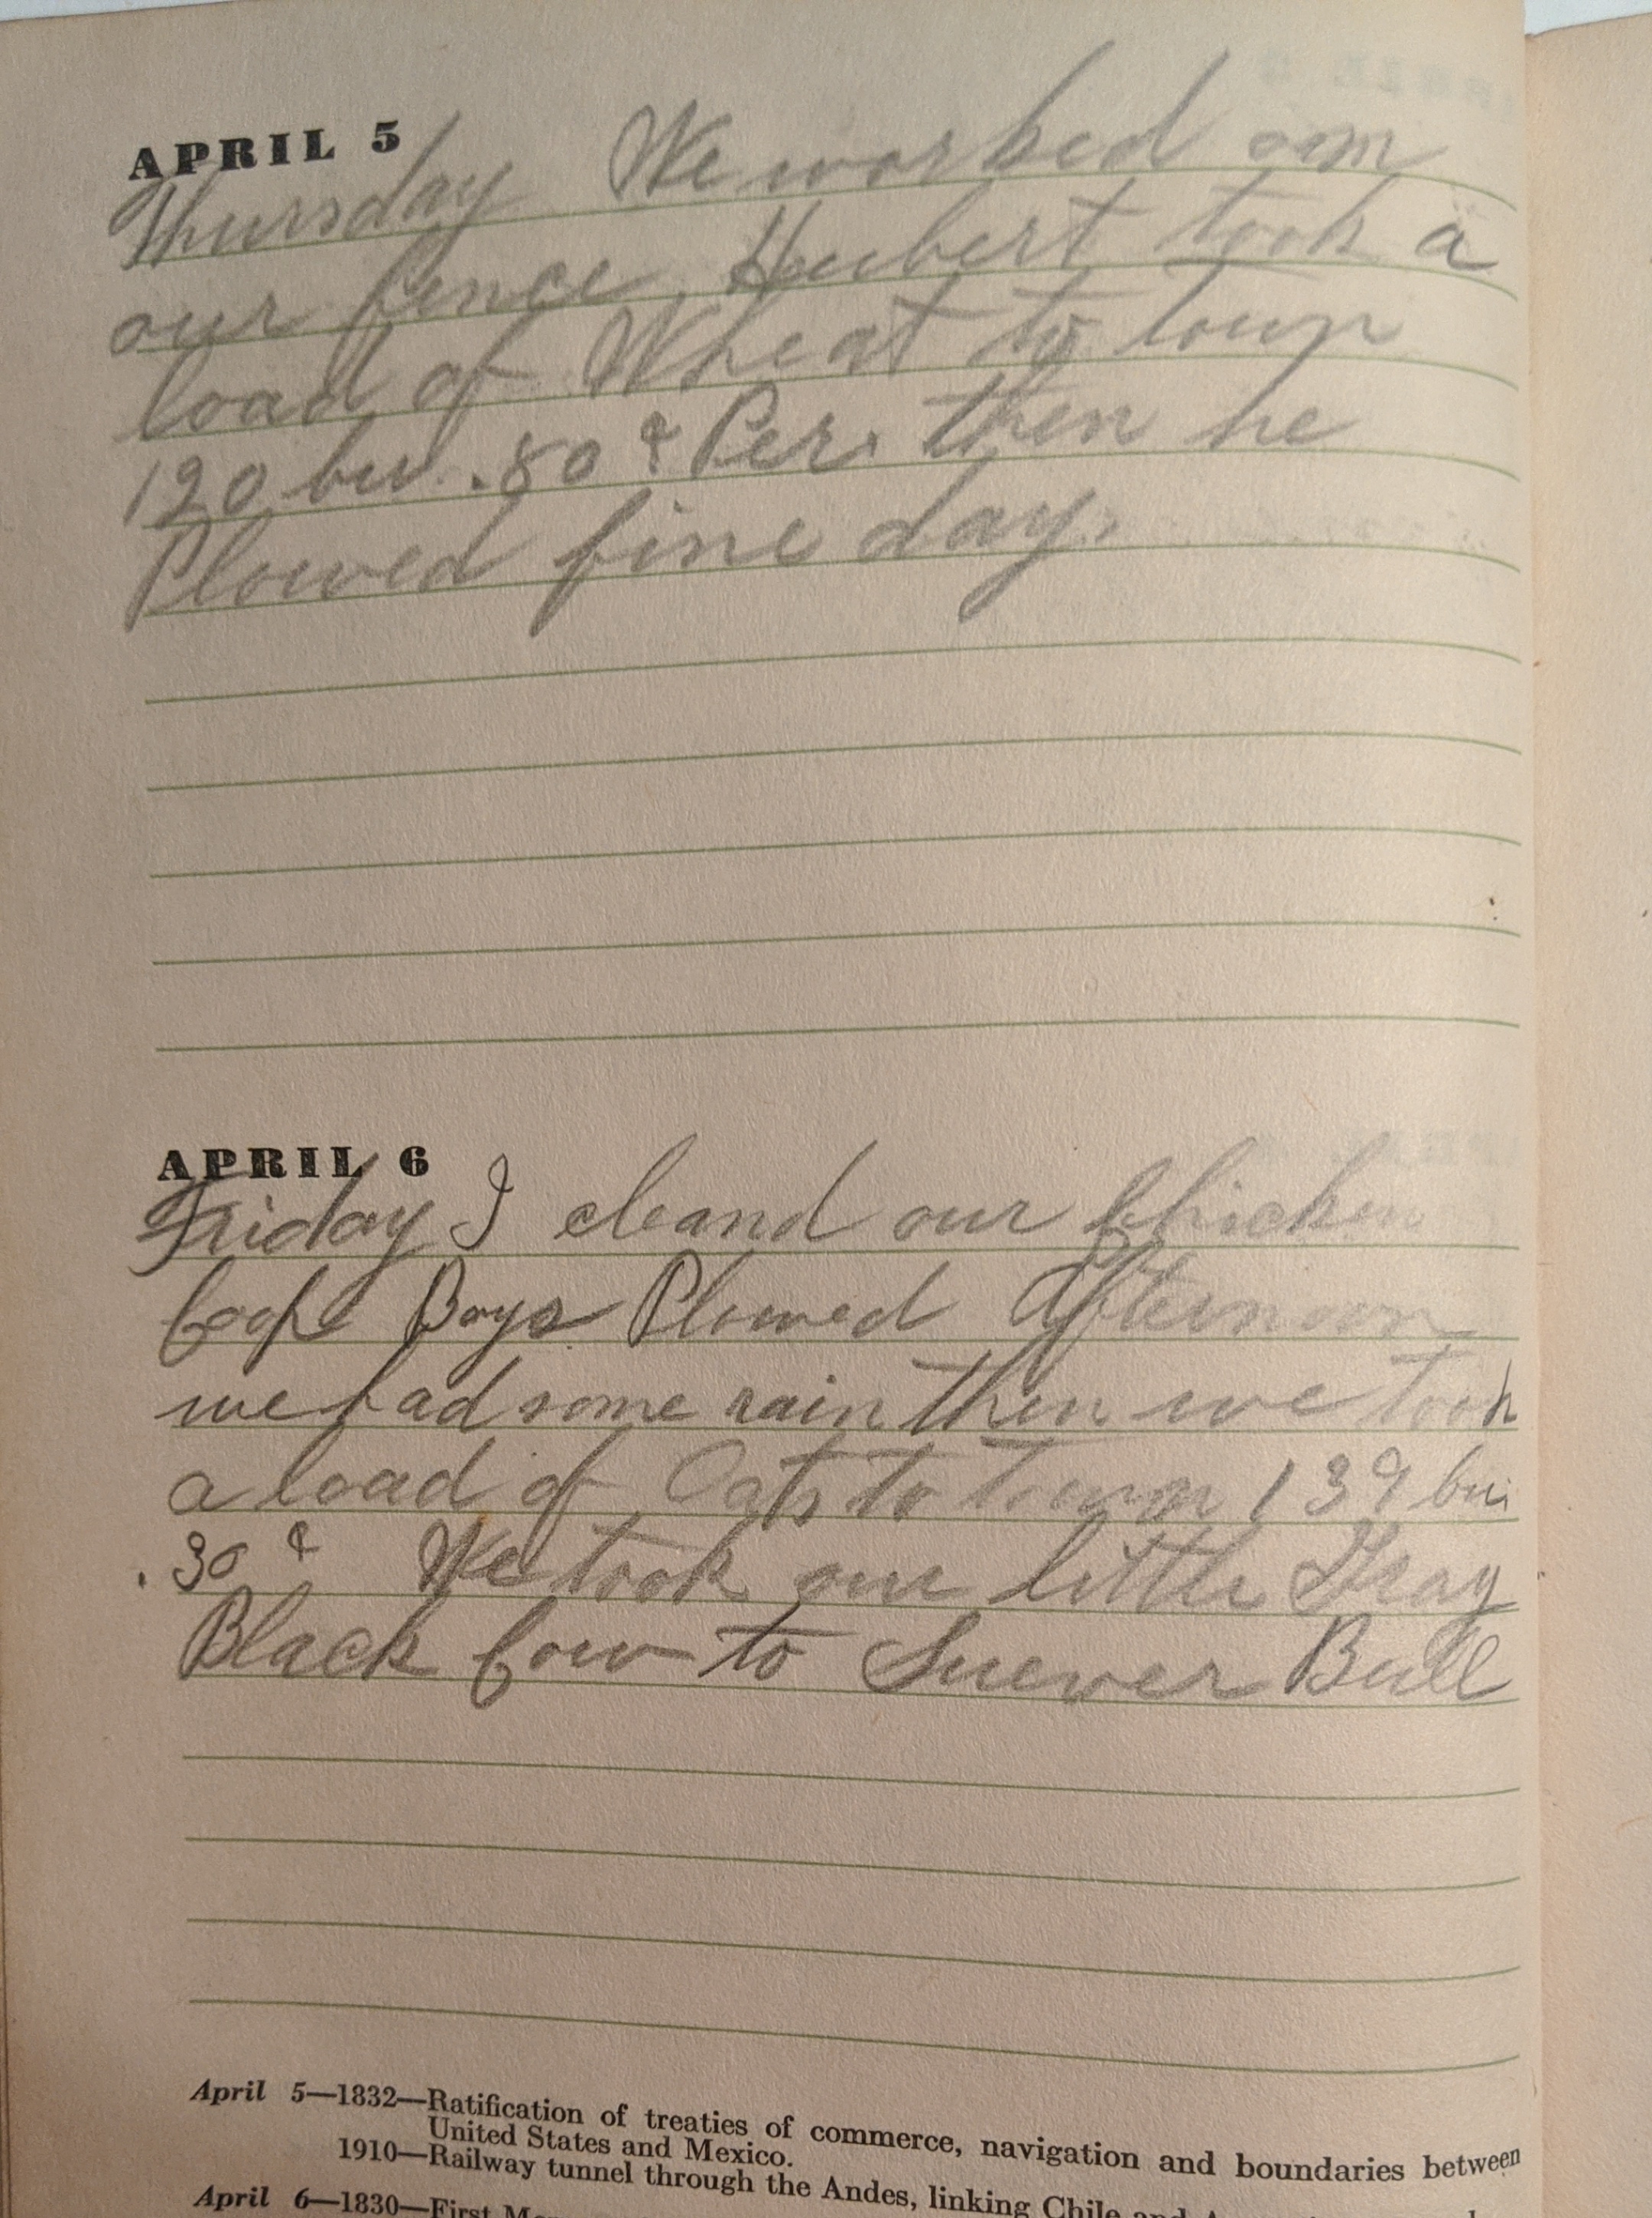 APRIL 5
Thursday We worked on
our fence. Hubert took a
load of Wheat to town
120 bu. .80 ¢ Per. then he
Plowed fine day.
APRIL 6
Friday I cleand our Chicken
Coope Boys Plowed Afternoon
we had some rain then we took
a load of Oats to town 139 bu.
.30 ¢ We took our little Gray
Black Cow to Suever Bull
April 5—1832—Ratification of treaties of commerce, navigation and boundaries between
United States and Mexico.
1910—Railway tunnel through the Andes, linking Chile and
April 6—1830—First